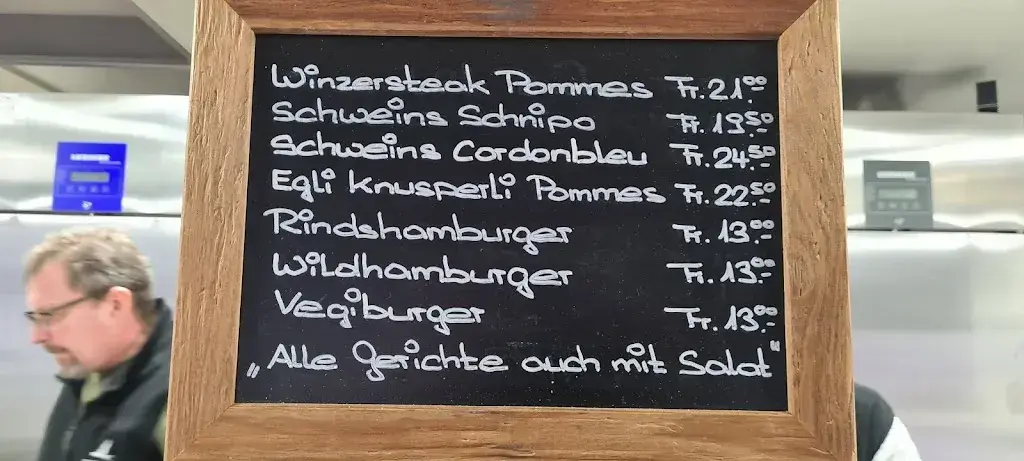 Winzersteak Pommes Fr. 21.00
Schweins Schnipo Fr. 19.50
Schweins Cordonbleu Fr. 24.50
Egli Knusperli Pommes Fr. 22.50
Rindshamburger Fr. 13.00
Wildhamburger Fr. 13.00
Vegiburger Fr. 13.00
„Alle Gerichte auch mit Salat"
LIEBHERR